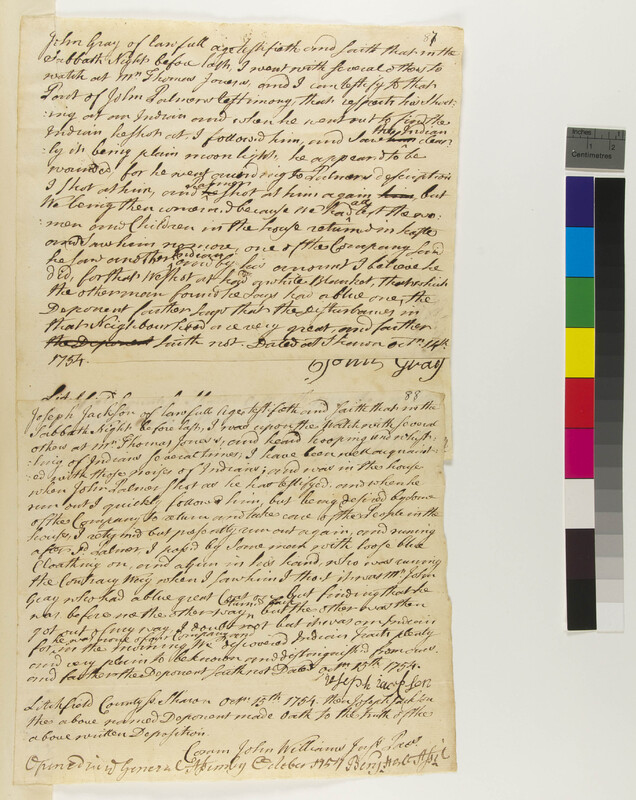 87
John Gray of lawfull age testifieth and saith that in the
Sabbath Night before last, I went with several others to
watch at Mr Thomas Jones's, and I can testify to that
Part of John Palmers testimony that respects his Shoot-
ing at an Indian and when he went out to find the
Indian he shot at I followed him, and I saw the Indian clear-
ly it being plain moon light, he appeared to be
wounded, for he went according to Palmers description
I shot at him, and Palmer shot at him again him, but
We being then concerned because we had all left the wo-
men and Children in the house returned in haste
and saw him no more, one of the Company said
he saw another Indian and by his account I believe he
did, for that We shot at had a white Blanket, that which
the other man found he Says had a blue one, the
Deponent farther Says that the disturbances in
that Neighbourhood are very great, and farther
the Deponent Saith not. Dated at Sharon octr 14th
1754.
John Gray
88
Joseph Jackson of lawfull age testifieth and saith that in the
Sabbath Night before last, I was upon the Watch with several
others at Mr Thomas Jones's, and heard hooping and whist-
ling of Indians several times. I have been well acquaint-
ed with those noises of Indians; and was in the house
when John Palmer Shot as he has testifyed. and when he
run out I quickly followed him, but being desired by some
of the Company to return and take care of the People in the
house, I return'd but presently run out again, and runing
after sd Palmer I pased by Some man with loose blue
Cloathing on, and a gun in his hand, who was runing
the Contrary way when I saw him I thot it was Mr John
Gray who had a blue great Coat on, but finding that he
was before me the other way I turned back but the other was then
got out of my way, I doubt not but it was an Indian
for he was none of our Company and in the morning We discovered Indian tracts plenty
and very plain to be known and distinguished from ours.
and farther the Deponent saith not Dated octr 15th 1754.
Joseph Jackson
Litchfield County Ss Sharon Octr 15th 1754. then Joseph Jackson
the above named Deponent made Oath to the truth of the
above written Deposition.
Coram John Williams Just Pace
Opened in ye General Assembly October 1754